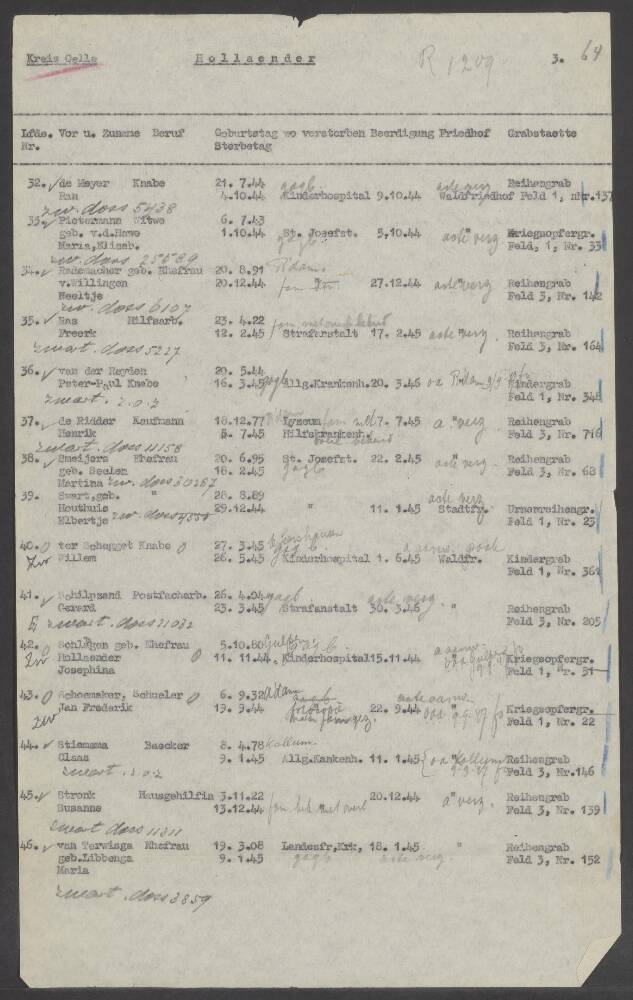 Kreis Celle Hollaender R 1209 3. 64
Lfde. Vor u. Zuname Beruf Geburtstag wo verstorben Beerdigung Friedhof Grabstaette
Nr. Sterbetag
32. de Meyer Knabe 21. 7.44 Reihengrab
Han 4.10.44 Kinderhospital 9.10.44 Waldfriedhof Feld 1, nhr.137
zw. doss 5438
33. Pietermann Witwe 6. 7.43
geb. v.d.Hawo 1.10.44 St. Josefst. 5.10.44 acte verg. Kriegsopfergr.
Maria,Elisab. Feld, 1, Nr. 33
zw. doss 25589
34. Rademacher geb. Ehefrau 20. 8.91 R'dam
v.Willingen 20.12.44 " 27.12.44 acte verg Reihengrab
Neeltje Feld 3, Nr. 142
zw. doss 6107
35. Bas Hilfsarb. 23. 4.22
Freerk 12. 2.45 Strafanstalt 17. 2.45 acte verg. Reihengrab
zwart. doss 5227 Feld 3, Nr. 164
36. van der Reyden 20. 5.44
Peter-Paul Knabe 16. 3.45 Allg.Krankenh. 20. 3.46 Kindergrab
zwart. Feld 1, Nr. 348
37. de Ridder Kaufmann 18.12.77 Lyzeum 7. 7.45 a. verg. Reihengrab
Henrik 5. 7.45 Hilfskrankenh. Feld 3, Nr. 716
zwart. doss 11158
38. Smeijers Ehefrau 20. 6.95 St. Josefst. 22. 2.45 acte verg. Reihengrab
geb. Seelen 18. 2.45 Feld 3, Nr. 68
Martina zw. doss 30287
39. Swart,geb. " 28. 8.89 acte verg
Houthuis 29.12.44 " 11. 1.45 Stadtfr. Urnenreihengr.
Elbertje zw. doss Feld 1, Nr. 23
40. ter Schegget Knabe 27. 3.45
zw Willem 26. 5.45 Kinderhospital 1. 6.45 Waldfr. Kindergrab
Feld 1, Nr. 361
41. Schilpzand Postfacharb. 26. 4.04 acte verg.
Gerard 23. 3.45 Strafanstalt 30. 3.46 " Reihengrab
zwart. doss 21032 Feld 3, Nr. 205
42. Schlägen geb. Ehefrau 5.10.80
zw Hollaender 11. 11.44 Kinderhospital 15.11.44 Kriegsopfergr.
Josephina Feld 1, Nr. 51
43. Schoemaker, Schueler 6. 9.32 A'dam
Jan Frederik 19. 9.44 22. 9.44 Kriegsopfergr.
zw Feld 1, Nr. 22
44. Stiemsma Baecker 8. 4.78 Kollum
Claas 9. 1.45 Allg.Kankenh. 11. 1.45 Reihengrab
zwart. Feld 3, Nr.146
45. Stronk Hausgehilfin 3.11.22 20.12.44 a verg. Reihengrab
Susanne 13.12.44 Feld 3, Nr. 139
zwart doss 11311
46. van Terwisga Ehefrau 19. 3.08 Landesfr,Krk, 18. 1.45 " Reihengrab
geb.Libbenga 9. 1.45 acte verg. Feld 3, Nr. 152
Maria
zwart. doss 3859